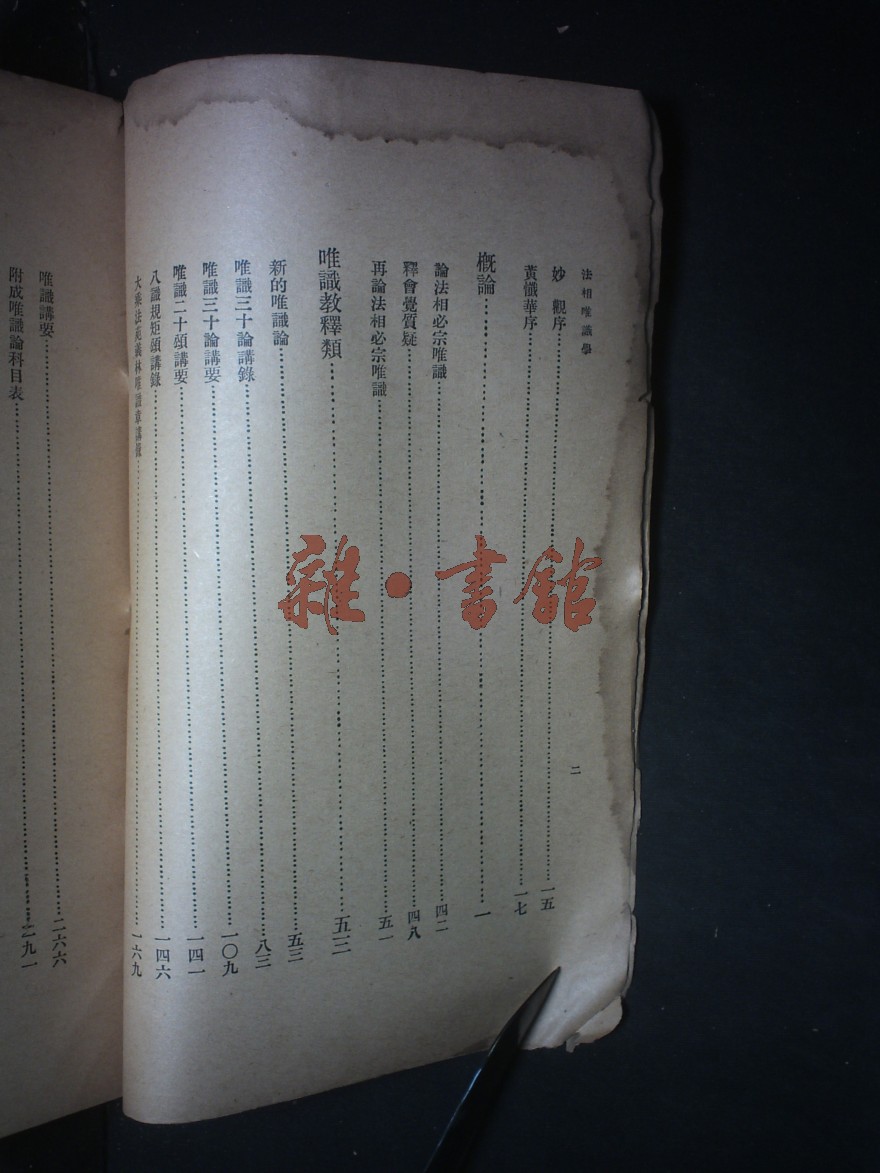 法相唯識學
二
妙觀序……一五
黃懺華序……一七
概論……一
論法相必宗唯識……四二
釋會覺質疑……四八
再論法相必宗唯識……五一
唯識教釋類……五三
新的唯識論……五三
唯識三十論講錄……八三
唯識三十論講要……一〇九
唯識二十頌講要……一四一
八識規矩頌講錄……一四六
大乘法苑義林唯識章講錄……一六九
唯識講要……二六六
附成唯識論科目表……二九一
雜·書館